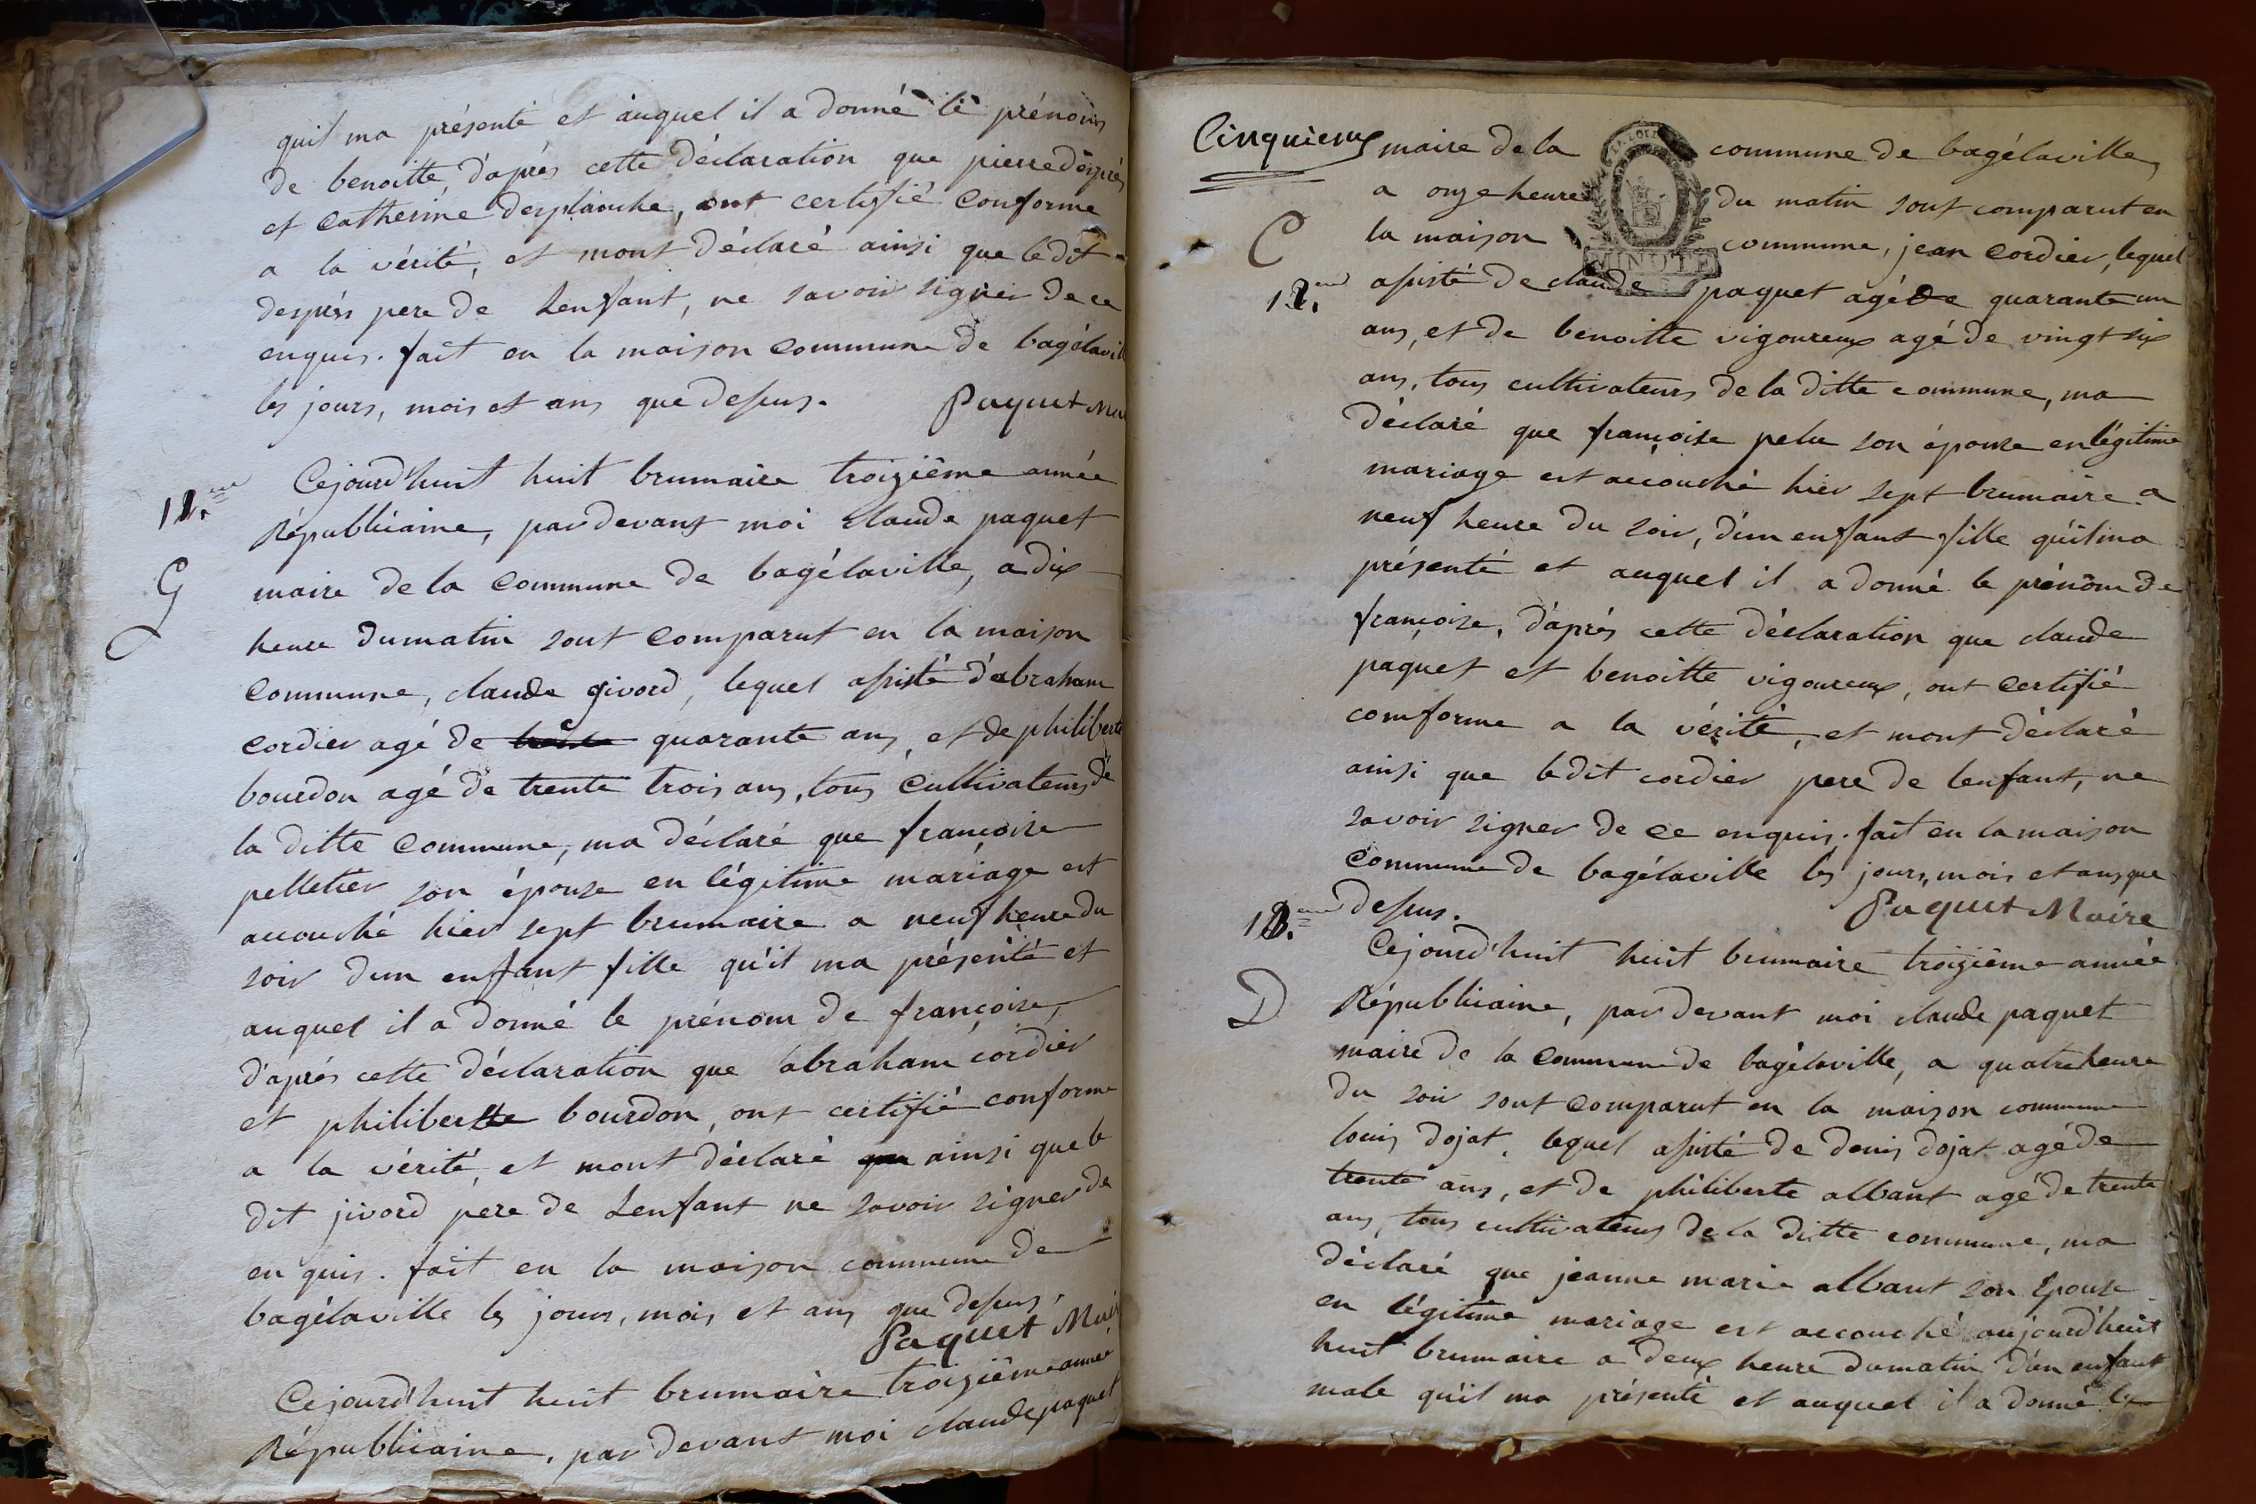 quil ma présenté et auquel il a donné le prénoms
de benoitte, d'aprés cette déclaration que pierre désprés
et Catherine desplanche, ont certifié Conforme
a la vérité, et mont déclaré ainsi que le dit
després pere de Lenfant, ne savoir signer de ce
enquis. fait en la maison Commune de bagélavill
les jours, mois et ans que dessus.
Paquet Mai
11.eme
G
Cejourd'huit huit brumaire troizième année
Républicaine, pardevant moi Claude paquet
maire de la Commune de bagélaville, a dix
heure dumatin sont Comparut en la maison
Commune, claude givord, lequel assisté d'abraham
Cordier agé de quarante ans, et de philiberte
bourdon agé de trente trois ans, tous Cultivateurs de
la ditte Commune, ma déclaré que françoise
pelletier son épouse en légitime mariage est
accouché hier sept brumaire a neuf heure du
soir d'un enfant fille qu'il ma présenté et
auquel il a donné le prénom de françoise,
d'aprés cette déclaration que abraham cordier
et philiberte bourdon, ont certifié conforme
a la vérité, et mont déclaré ainsi que le
dit jivord pere de Lenfant ne savoir signer de
en quis. fait en la maison commune de
bagélaville les jours, mois et ans que dessus.
Paquet Mair
Cejourd'huit huit brumaire troizième année
Républicaine, par devant moi claude paquet
Cinquieme
maire de la commune de bagélaville,
a onze heure du matin sont comparut en
C
la maison commune, jean Cordier, lequel
MINUTE
12.eme
assisté de claude paquet agé de quarante un
ans, et de benoitte vigoureux agé de vingt six
ans, tous cultivateurs de la ditte commune, ma
déclaré que françoise pelu son épouse en légitime
mariage est accouché hier sept brumaire a
neuf heure du soir, d'un enfant fille qu'il ma
présenté et auquel il a donné le prénom de
françoise, d'aprés cette déclaration que claude
paquet et benoitte vigoureux, ont Certifié
comforme a la vérité, et mont déclaré
ainsi que ledit cordier pere de lenfant, ne
savoir signer de ce enquis. fait en la maison
Commune de bagélaville les jours, mois et ans que
dessus.
Paquet Maire
13.eme
D
Cejourd'huit huit brumaire troizième année
Républicaine, par devant moi claude paquet
maire de la Commune de bagélaville, a quatre heure
du soir sont Comparut en la maison commune
louis dojat, lequel assisté de denis dojat agé de
trente ans, et de philiberte albant agé de trente
ans, tous cultivateurs de la ditte commune, ma
déclaré que jeanne marie albant son Epouse
en légitime mariage est accouché aujourd'huit
huit brumaire a deux heure dumatin d'un enfant
male qu'il ma présenté et auquel il a donné le